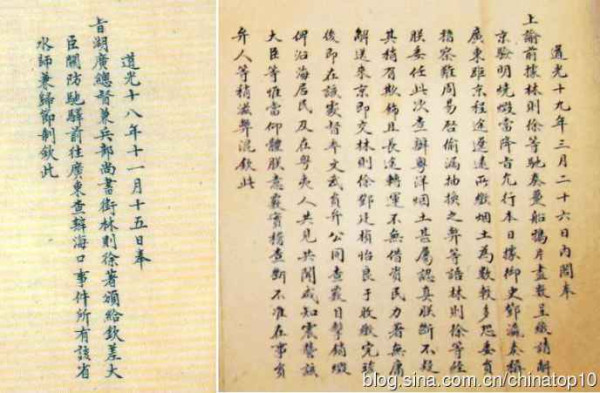 道光十八年十一月十五日奉
旨湖廣總督兼兵部尚書銜林則徐著頒給欽差大
臣關防馳驛前往廣東查辦海口事件所有該省
水師兼歸節制欽此
道光十九年三月二十六日內閣奉
上諭前據林則徐等馳奏躉船鴉片盡數呈繳請解
京驗明燒燬當降旨允行本日據御史鄧瀛奏稱
廣東距京程途遼遠所繳烟土為數較多恐委員
稽察難周易啓偷漏抽換之弊等語林則徐等經
朕委任此次查辦粵洋烟土甚屬認真朕斷不疑
其稍有欺飾且長途轉運不無借資民力著無庸
解送來京即交林則徐鄧廷楨怡良于收繳完竣
後即在該處督率文武員弁公同查覈目擊銷燬
俾沿海居民及在粵夷人共見共聞咸知震讋該
大臣等惟當仰體朕意覈實稽查斷不准在事員
弁人等稍滋弊混欽此
blog.sina.com.cn/chinatop10